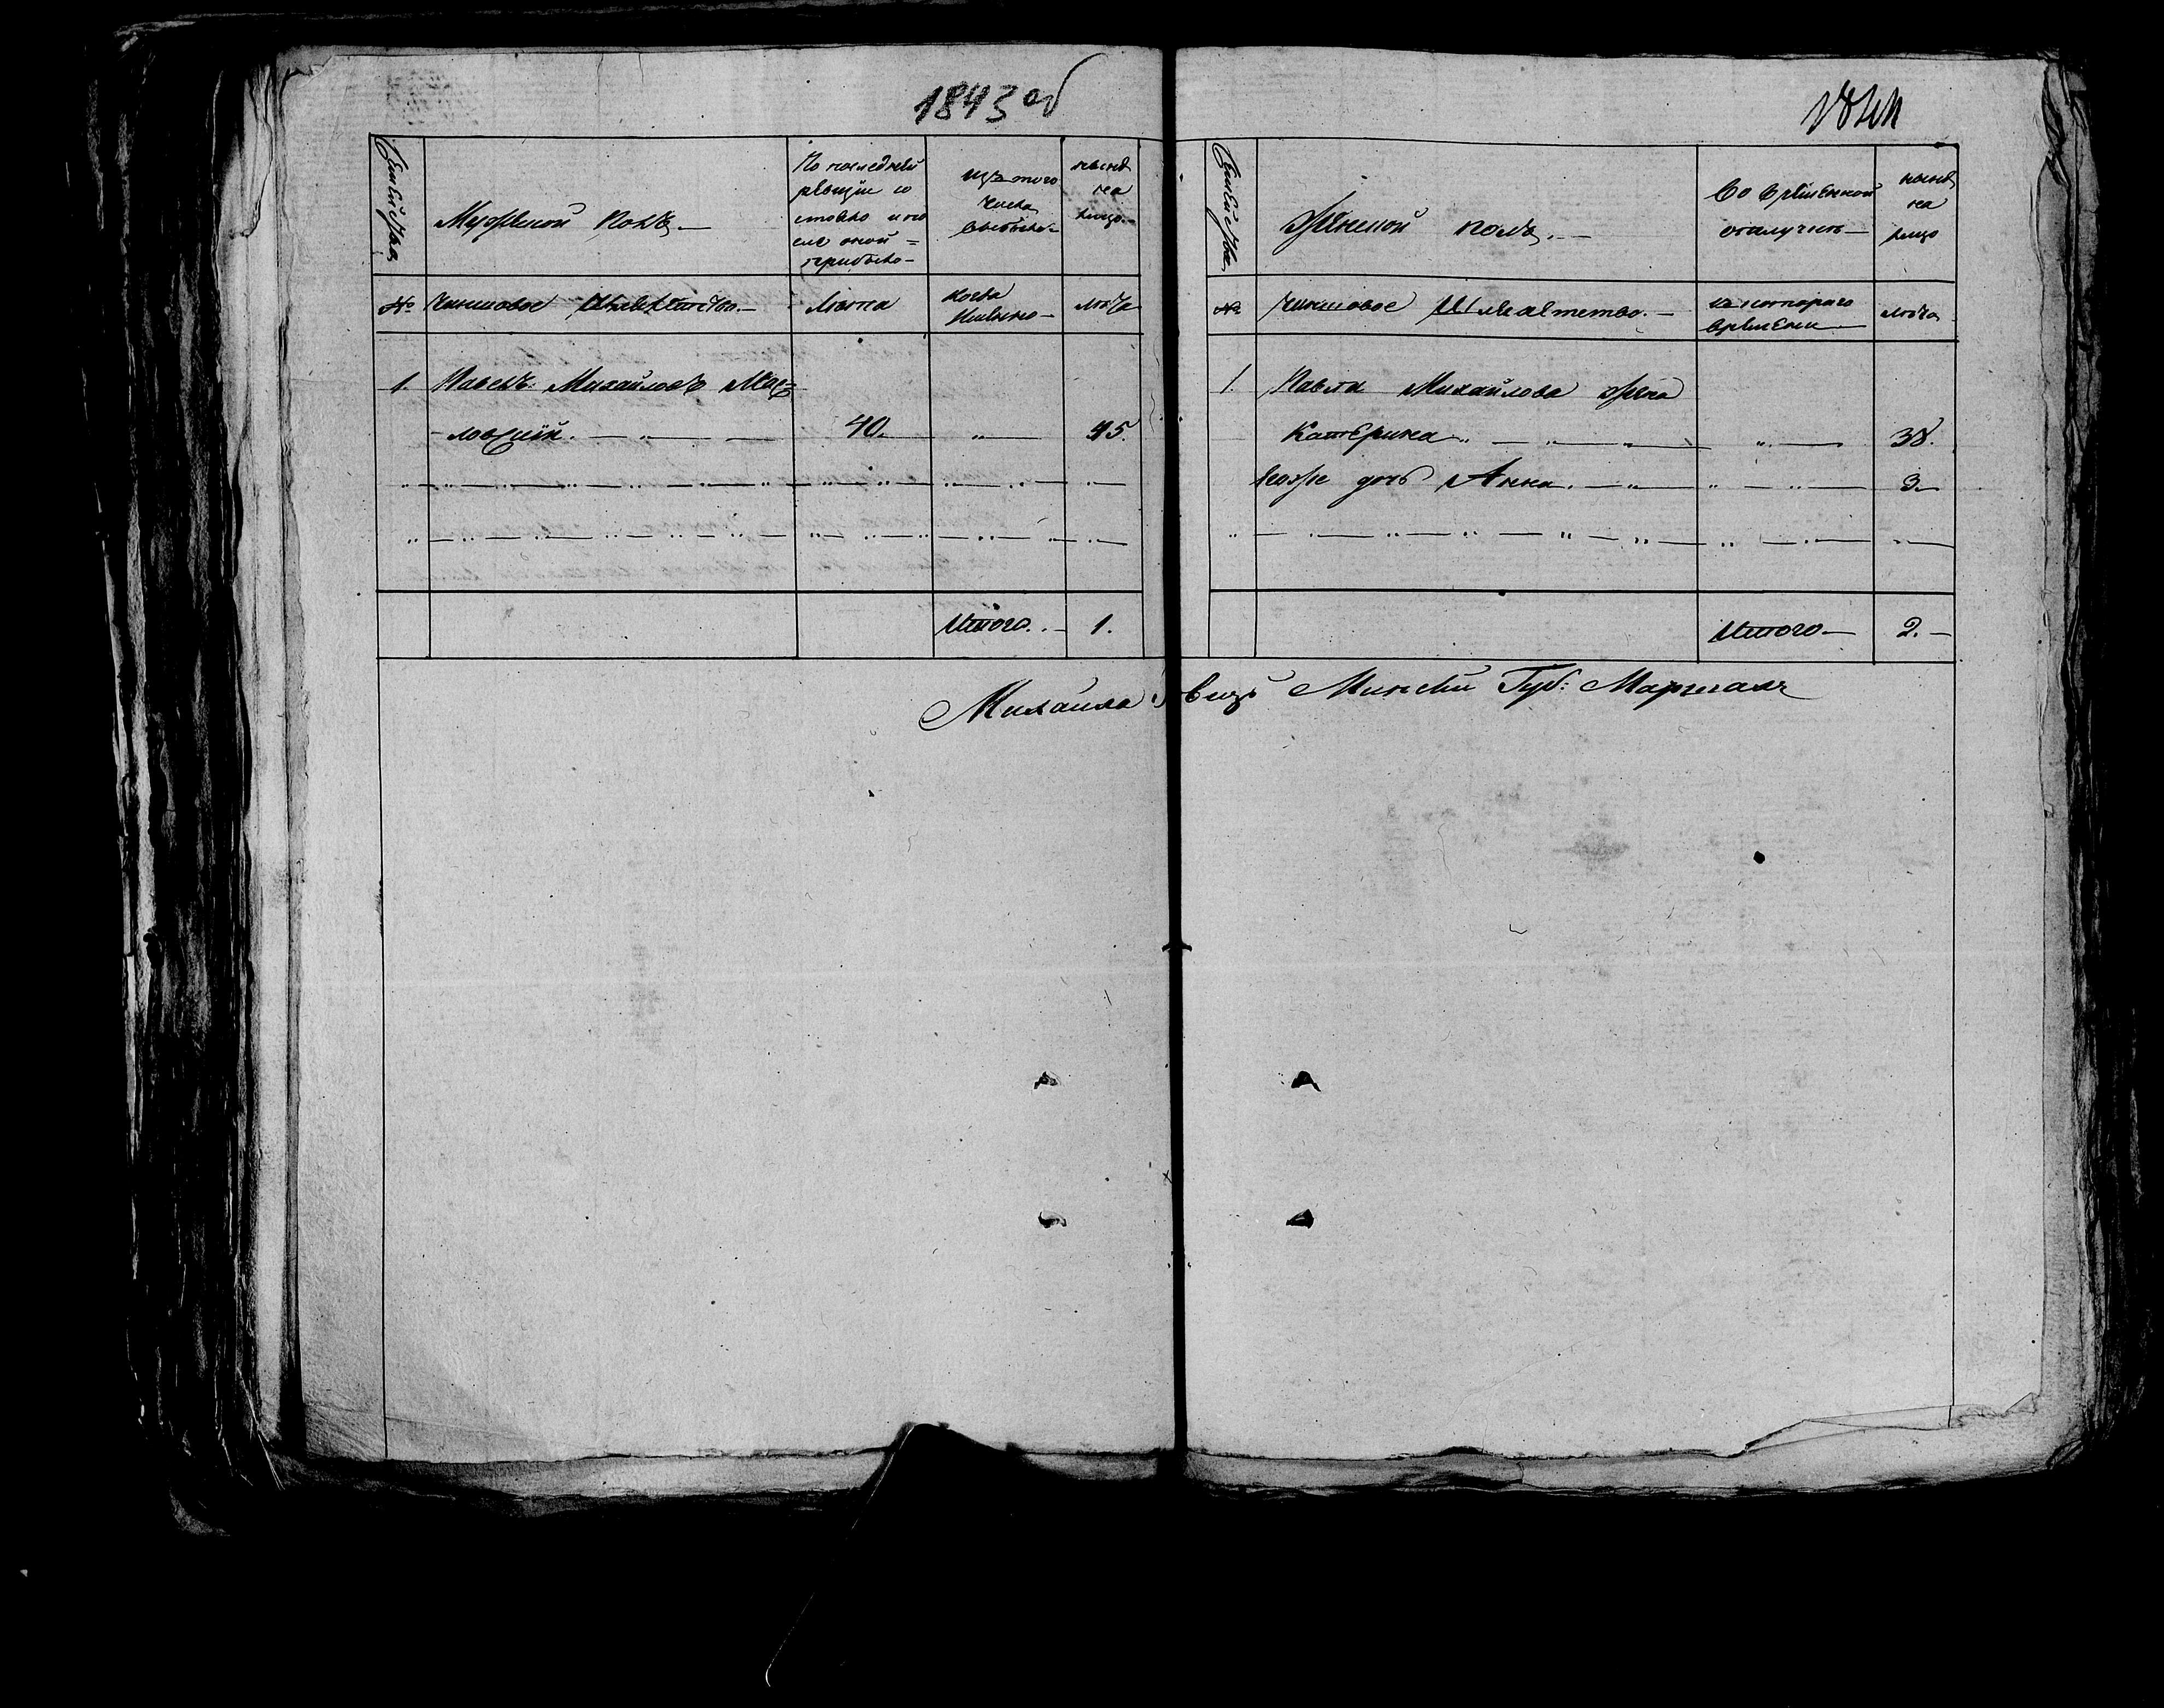 1843 об
Семейства
Мужеской полъ
По последней
ревизіи со
стояло и по
сле оной
прибыло
изъ того
числа
выбыло
ныне
на
лицо
№
Чиншовое Шляхетство
Лета
когда
Имянно
лета
1. Павелъ Михайловъ
ловскій. 40. 45.
Итого. 1.
Семейства
Женской полъ.
Во временной
отлучке
ныне
на
лицо
№
Чиншовое Шляхетство.
съ котораго
времени
лета
1. Павла Михайлова жена
Катерина 38.
его же дочь Анна. 3.
Итого 2.
Михаила Минский Губ: Маршалъ